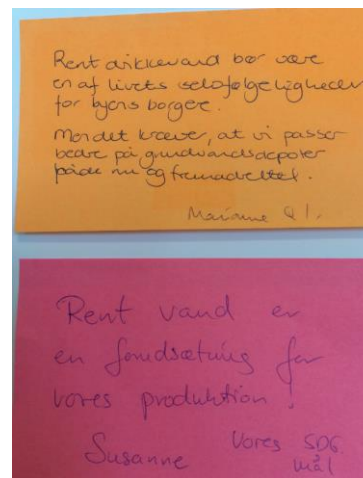 Rent drikkevand bør være
en af livets selvfølgeligheder
for byens borgere.
Men det kræver, at vi passer
bedre på grundvandsdepoter
både nu og fremadrettet.
Marianne
Rent vand er
en forudsætning for
vores produktion!
Susanne Vores SDG
mål